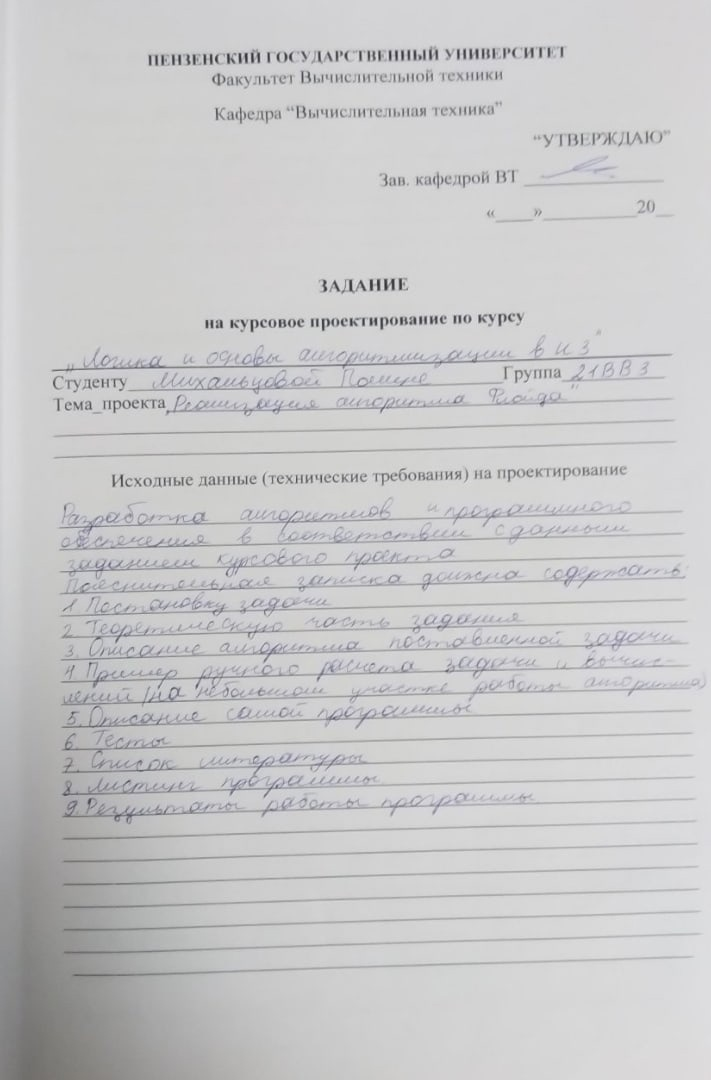 ПЕНЗЕНСКИЙ ГОСУДАРСТВЕННЫЙ УНИВЕРСИТЕТ
Факультет Вычислительной техники
Кафедра “Вычислительная техника”
“УТВЕРЖДАЮ”
Зав. кафедрой ВТ ______________
«____»__________20__
ЗАДАНИЕ
на курсовое проектирование по курсу
„Логика и основы алгоритмизации в ИЗ"
Студенту Михальцовой Полине Группа 21ВВ3
Тема_проекта „Реализация алгоритма Флойда"
Исходные данные (технические требования) на проектирование
Разработка алгоритмов и программного
обеспечения в соответствии с данным
заданием курсового проекта
Пояснительная записка должна содержать:
1. Постановку задачи
2. Теоретическую часть задания
3. Описание алгоритма поставленной задачи
4. Пример ручного расчета задачи и вычис-
лений (на небольшом участке работы алгоритма)
5. Описание самой программы
6. Тесты
7. Список литературы
8. Листинг программы
9. Результаты работы программы